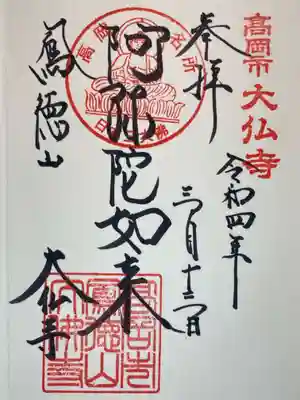 髙岡市 大仏寺
奉拝
令和四年
三月十二日
阿弥陀如来
鳳徳山
大仏寺